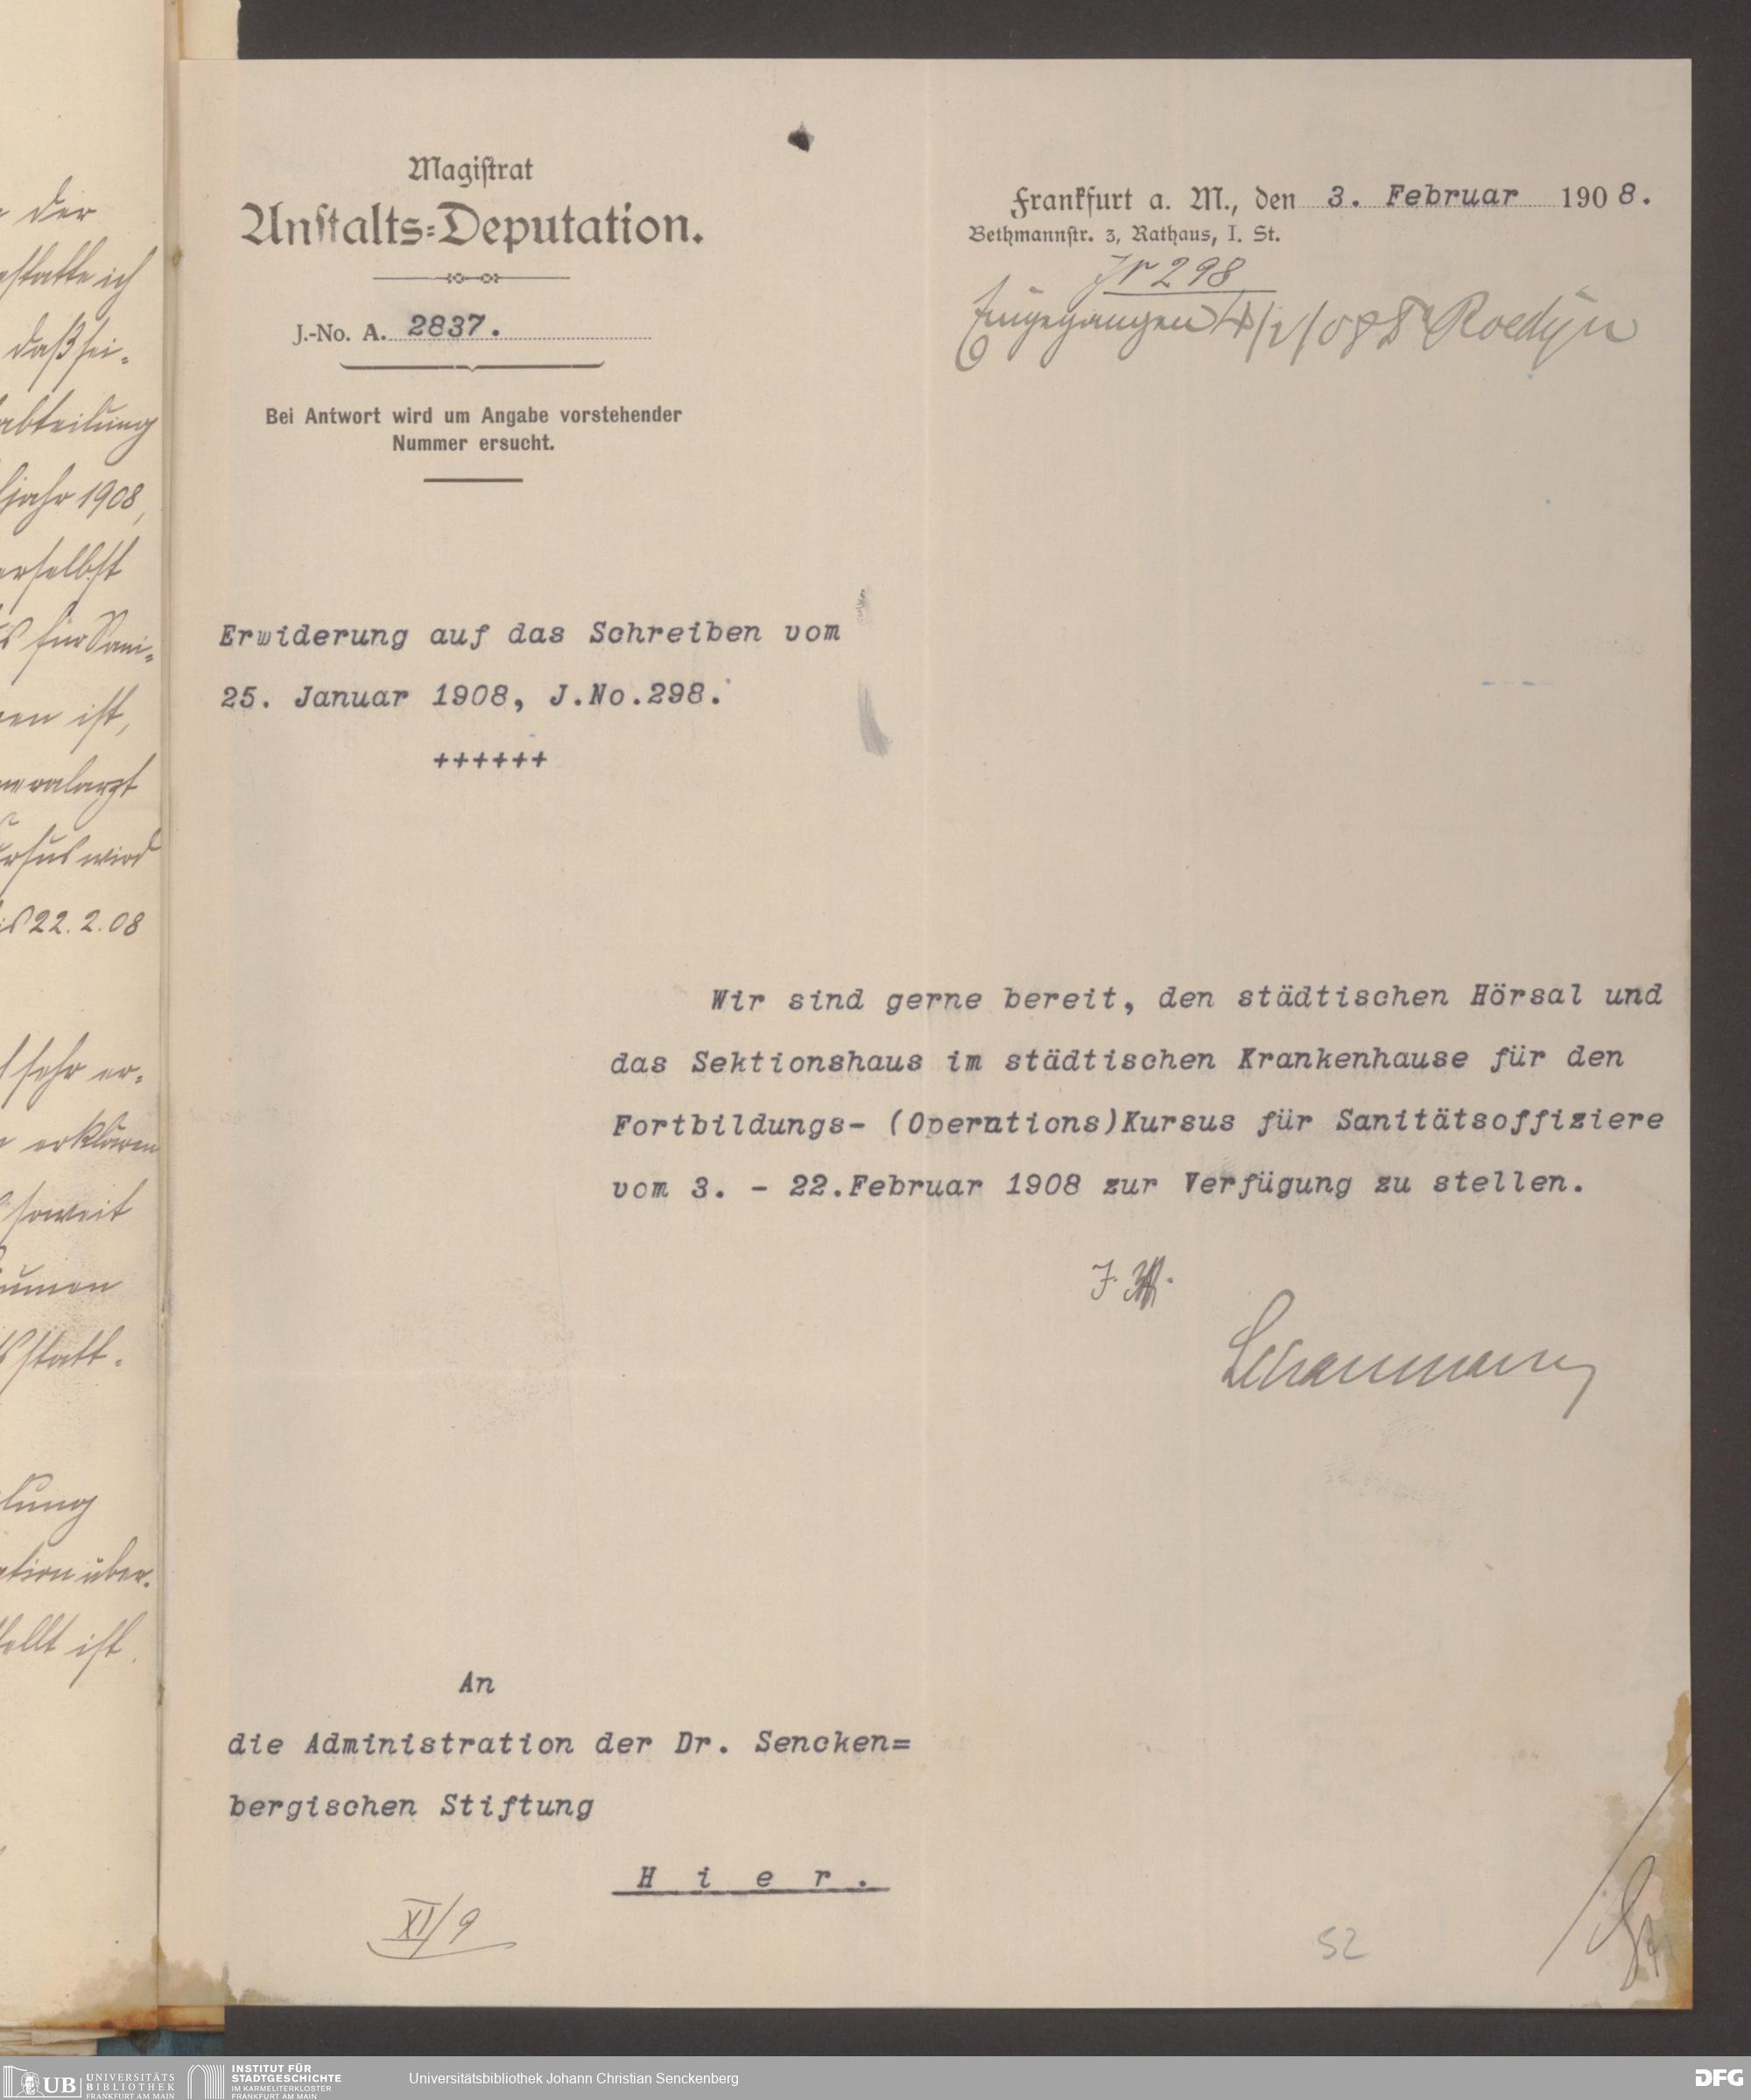 der
statte ich
daß sei-
abteilung
jahr 1908,
erselbst
für Sani-
en ist,
neralarzt
ursus wird
is 22.2.08
sehr er-
erklären
soweit
statt-
lung
ation über-
tellt ist.
Magistrat
Anstalts-Deputation.
J.-No. A. 2837.
Bei Antwort wird um Angabe vorstehender
Nummer ersucht.
Frankfurt a. M., den 3. Februar 1908.
Bethmannstr. 3, Rathaus, I. St.
Nr 298
Eingegangen 4/2/08 Dr Roediger
Erwiderung auf das Schreiben vom
25. Januar 1908, J.No.298.
++++++
Wir sind gerne bereit, den städtischen Hörsal und
das Sektionshaus im städtischen Krankenhause für den
Fortbildungs- (Operations)Kursus für Sanitätsoffiziere
vom 3. - 22.Februar 1908 zur Verfügung zu stellen.
An
die Administration der Dr. Sencken=
bergischen Stiftung
H i e r .
XI/9
52
UB UNIVERSITÄTS
BIBLIOTHEK
FRANKFURT AM MAIN
INSTITUT FÜR
STADTGESCHICHTE
IM KARMELITERKLOSTER
FRANKFURT AM MAIN
Universitätsbibliothek Johann Christian Senckenberg
DFG